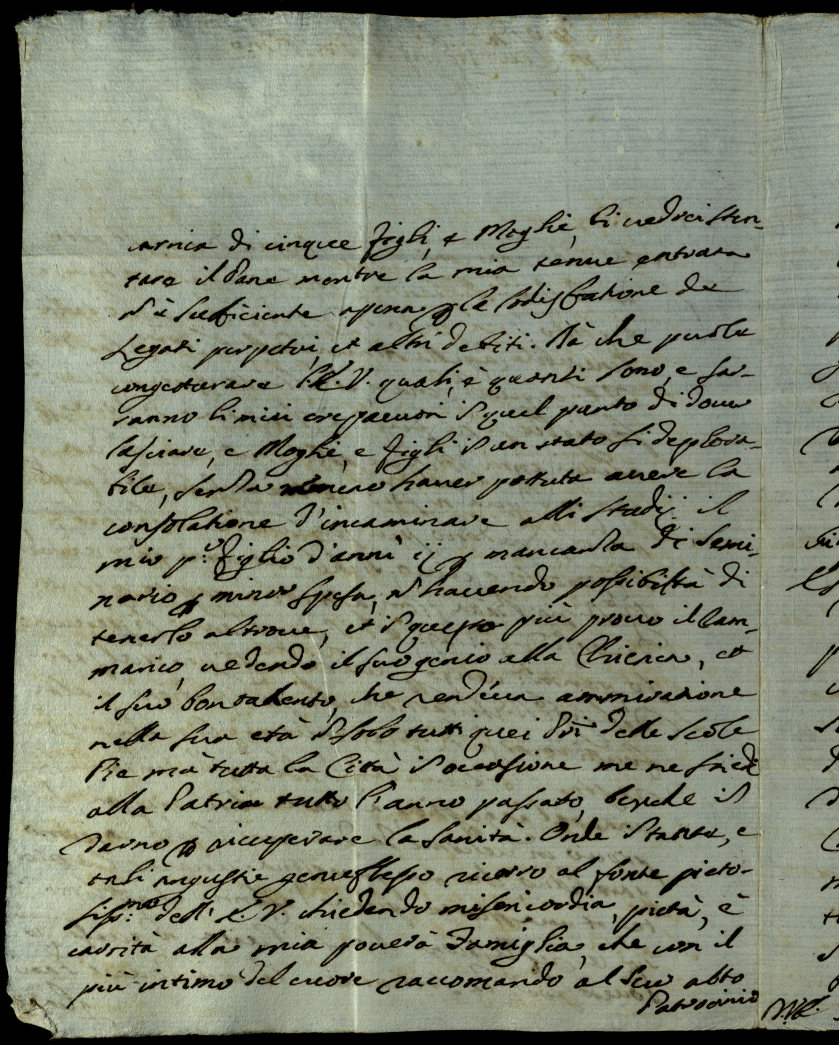 carnia di cinque figli, e Moglie, li vedrei sten-
tare il Pane mentre la mia tenue entrata
è sufficiente apena la sodisfatione de
Legati perpetui, et altri debiti. Mà che puole
congetturare V. quali, e quanti sono, e sar-
ranno li miei crepacuori quel punto di dover
lasciare, e Moglie, e figli un stato si deplora-
bile, senza haver possuta avere la
consolatione d'incaminare alli Studij il
mio p.º figlio d'anni ij mancanza di Semi-
nario minor spesa, havendo possibiltà di
tenerlo altrove, et questo più provo il Ram-
marico, vedendo il suo genio alla Chiesia, et
il suo bon talento, che rendeva ammiratione
nella sua età solo tutti quei delle Scole
Pie mà tutta la Città occasione me ne
alla Patria tutto l'anno passato, benche
darno ricuperare la Sanità. Onde stante, e
tali angustie genuflesso ricorro al fonte pieto-
siss.mo dell' V. chiedendo misericordia, pietà, è
carità alla mia povera Famiglia, che con il
più intimo del cuore raccomando al Suo alto
Patrocinio